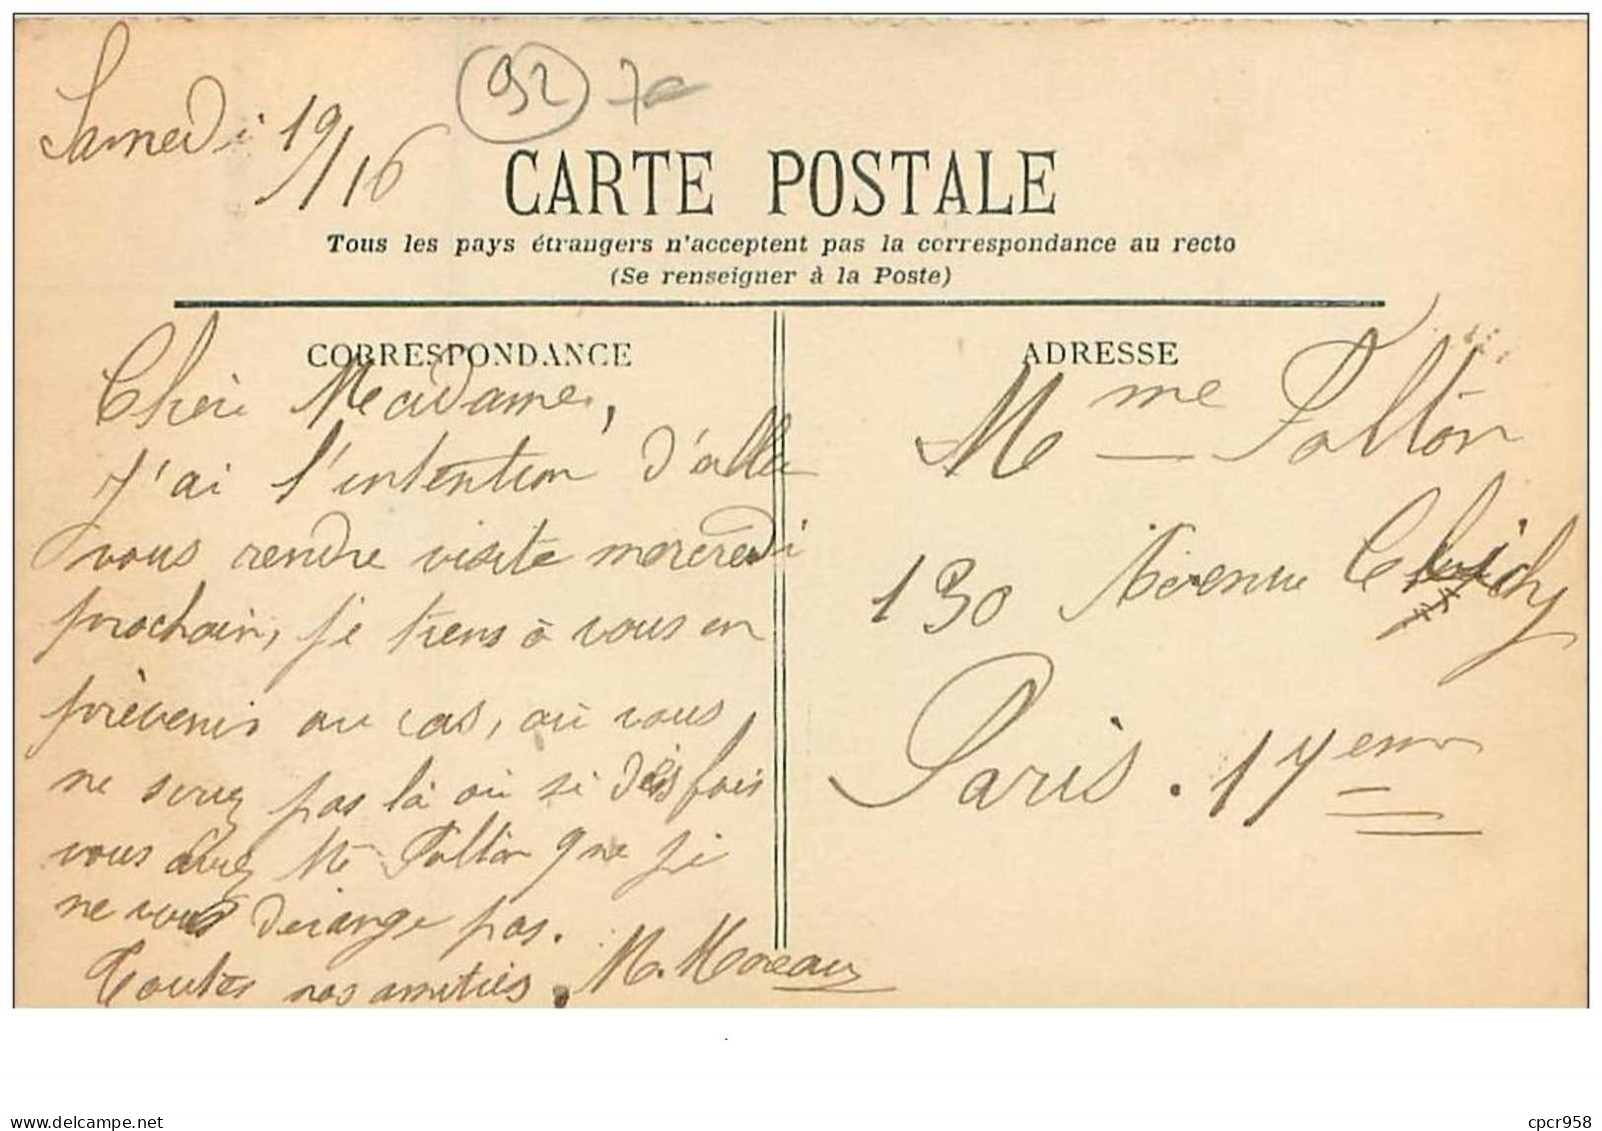 Samedi 19/1 16
92
CARTE POSTALE
Tous les pays étrangers n'acceptent pas la correspondance au recto
(Se renseigner à la Poste)
CORRESPONDANCE
Chère Madame,
J'ai l'intention d'aller
vous rendre visite mercredi
prochain, je tiens à vous en
prévenir au cas, où vous
ne serez pas là où si des fois
vous avez Mr Polton que je
ne vous dérange pas.
Toutes nos amitiés. M. Moreau
ADRESSE
Mme Polton
130 Avenue Clichy
Paris. 17eme
delcampe.net
cpcr958